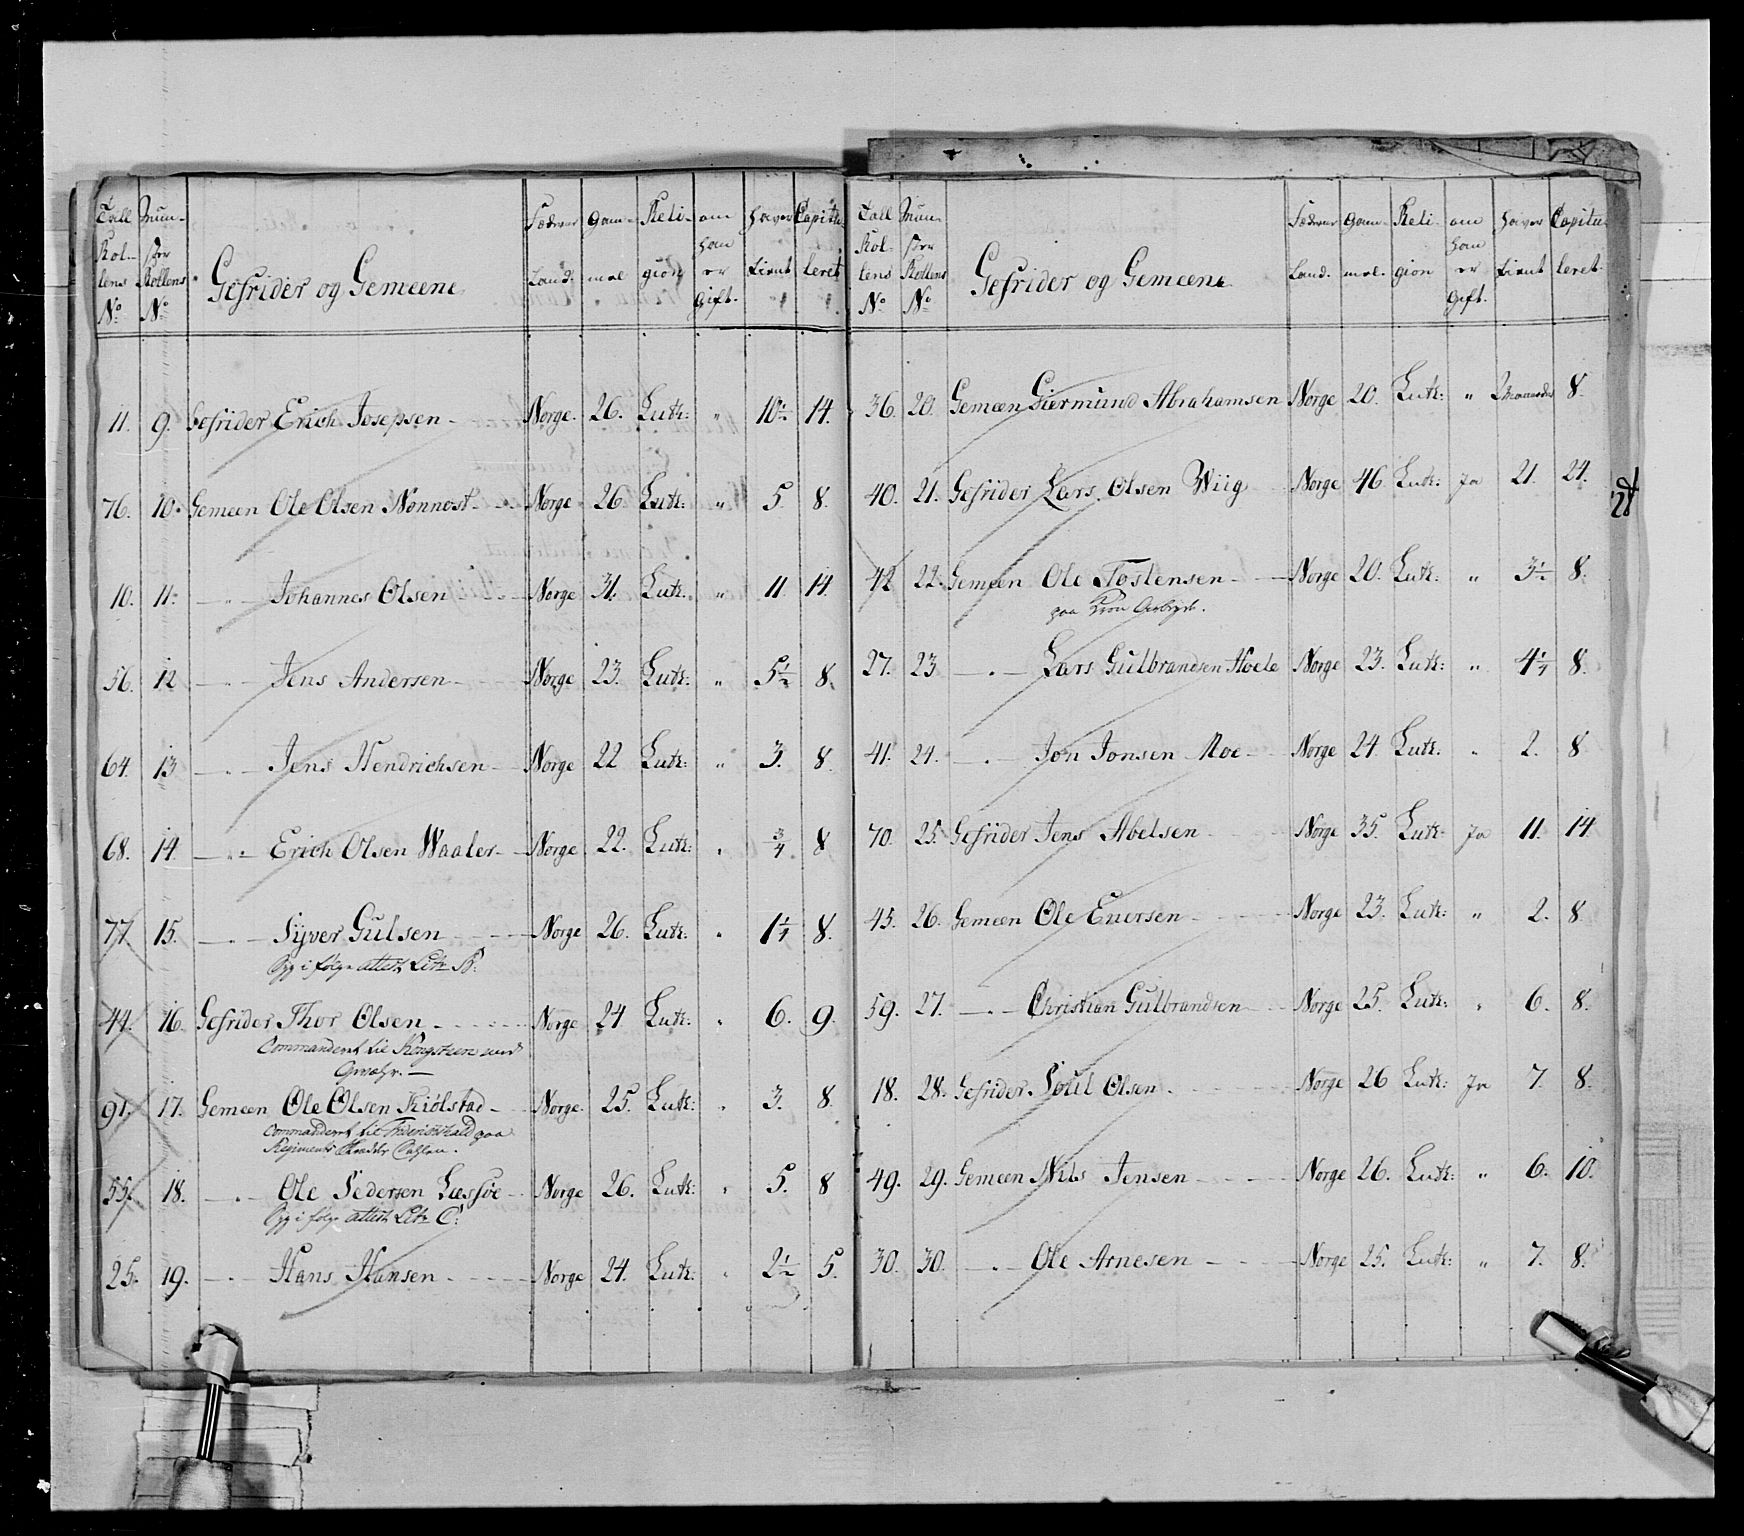 Tall Rol- lens No | Mun- ster Rollens No | Gefrider og Gemeene | Fædrene Land. | Gam- mel | Reli- gion | om han er Gift. | haver tient | Capitu- leret
11. 9. Gefrider Erich Josepsen - Norge. 26. Luth: " 10½ 14.
76. 10. Gemeen Ole Olsen Nonnost - Norge 26. Luth: " 5. 8.
10. 11. — " — Johannes Olsen - Norge 31. Luth. " 11. 14.
56. 12 — " — Jens Andersen - Norge 23. Luth: " 5½ 8.
64. 13 — " — Jens Hendrichsen - Norge 22 Luth: " 3. 8.
68. 14. — " — Erich Olsen Waaler - Norge 22. Luth: " ¾. 8
77. 15. — " — Syver Gulsen - Norge 26. Luth: " 1¼ 8.
Syg i følge attest Litr B:
44. 16. Gefrider Thor Olsen - Norge 24 Luth: " 6. 9.
Commanderet til Kongsteen med
Gevæhr. —
91. 17. Gemeen Ole Olsen Kiölstad - Norge. 25. Luth: " 3. 8.
Commanderet til Friderichshald paa
Regiments
55. 18. — " — Ole Pedersen Læssöe - Norge 26. Luth: " 5. 8
Syg i følge attest Litr C:
25. 19. — " — Hans Hansen - Norge 24. Luth: " 2½ 5.
Tall Rol- lens No | Mun- ster Rollens No | Gefrider og Gemeene | Fædrene Land. | Gam- mel. | Reli- gion | om han er Gift. | haver tient | Capitu- leret.
36. 20. Gemeen Giermund Abrahamsen Norge 20. Luth: " 8.
40. 21. Gefrider Lars Olsen Wiig Norge 46 Luth: Ja 21. 24.
24
42 22. Gemeen Ole Tostensen - Norge 20. Luth: " 3½ 8.
paa Arbeyde.
27. 23 — " — Lars Gulbrandsen Hoele Norge 23. Luth: " 4¼ 8.
41. 24. — " — Jon Jonsen Moe - Norge 24 Luth: " 2. 8
70. 25. Gefrider Jens Abelsen - Norge 35. Luth- Ja 11. 14
45. 26. Gemeen Ole Enersen - Norge 23. Luth: " 2. 8
59. 27. — " — Christian Gulbrandsen - Norge 25. Luth: " 6. 8.
18. 28. Gefrider Poul Olsen - Norge 26 Luth: Ja 7. 8.
49. 29. Gemeen Niels Jensen - Norge 26. Luth: " 6. 10.
30. 30. — " — Ole Arnesen - Norge 25. Luth: " 7. 8.